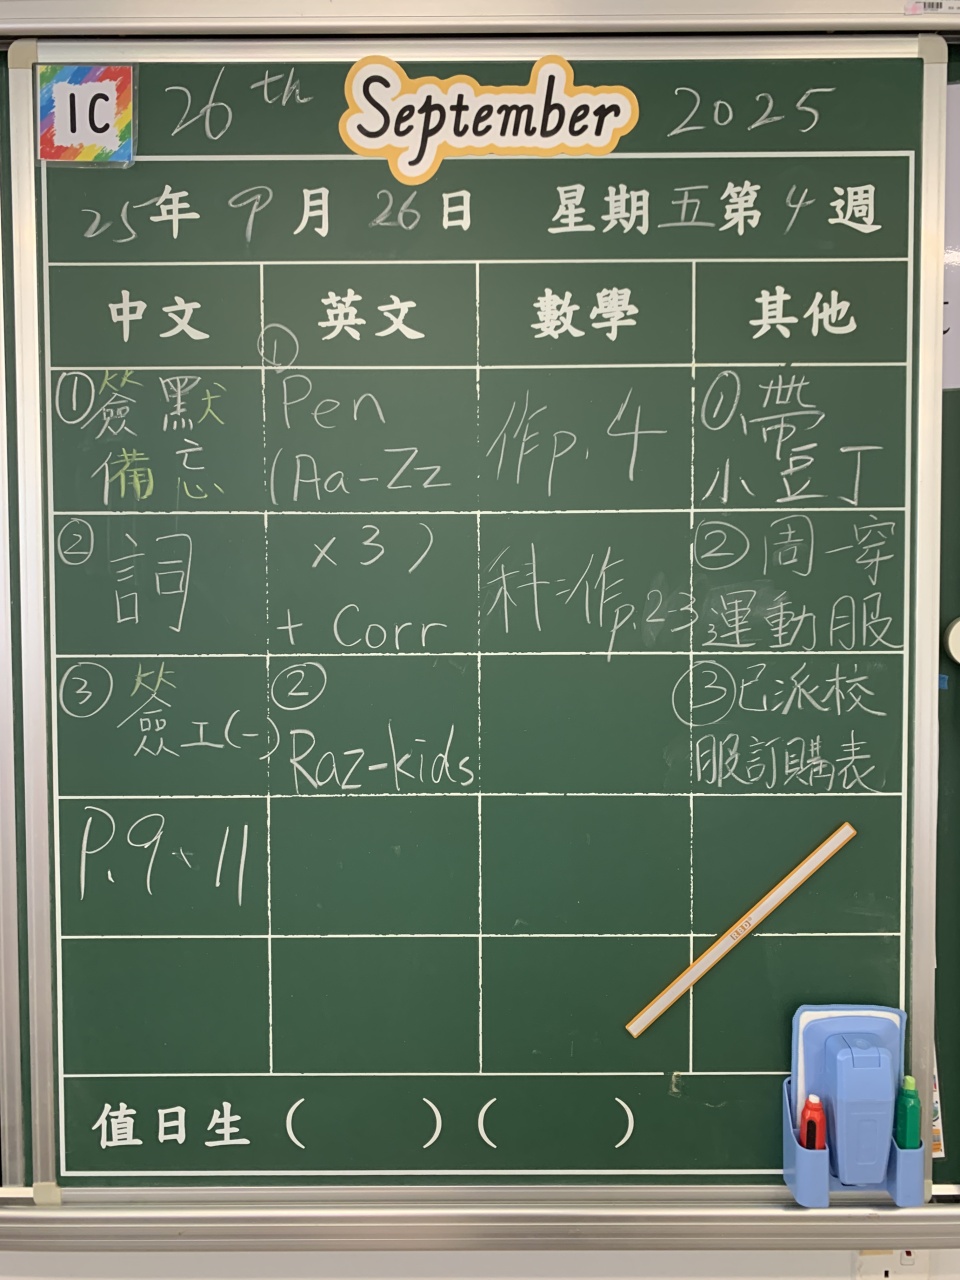 1C 26th September 2025
25年9月26日 星期五第4週
中文 英文 數學 其他
①簽默
備忘
②詞
③簽工(一)
P.9、11
①
Pen
(Aa-Zz
x3)
+ Corr
②
Raz-kids
作p.4
科:作p.23
①帶
小豆丁
②周一穿
運動服
③已派校
服訂購表
值日生 ( ) ( )